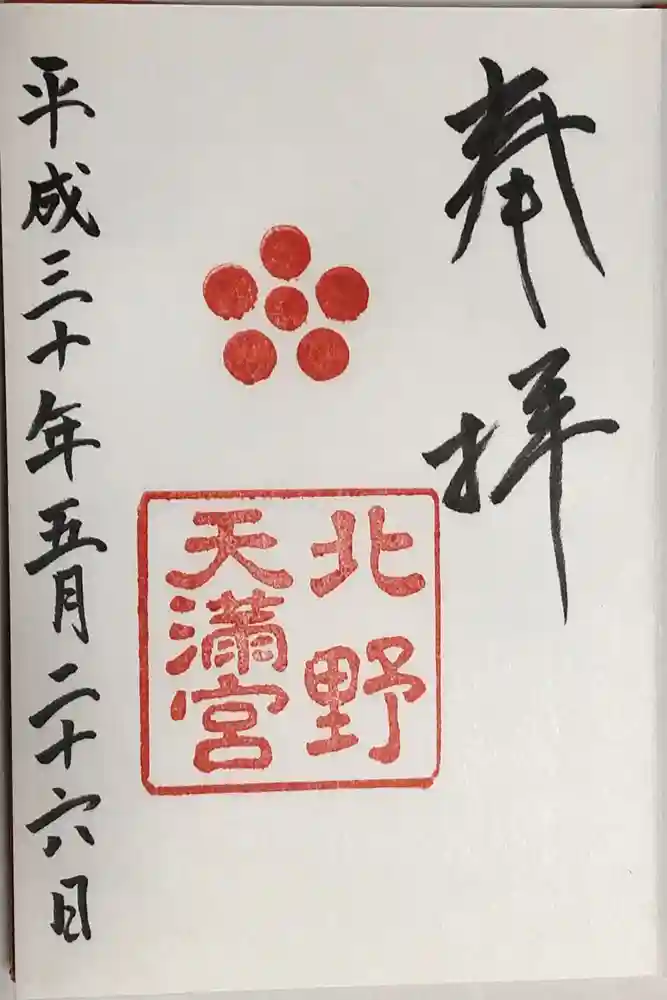 奉拝
北野
天満宮
平成三十年五月二十六日